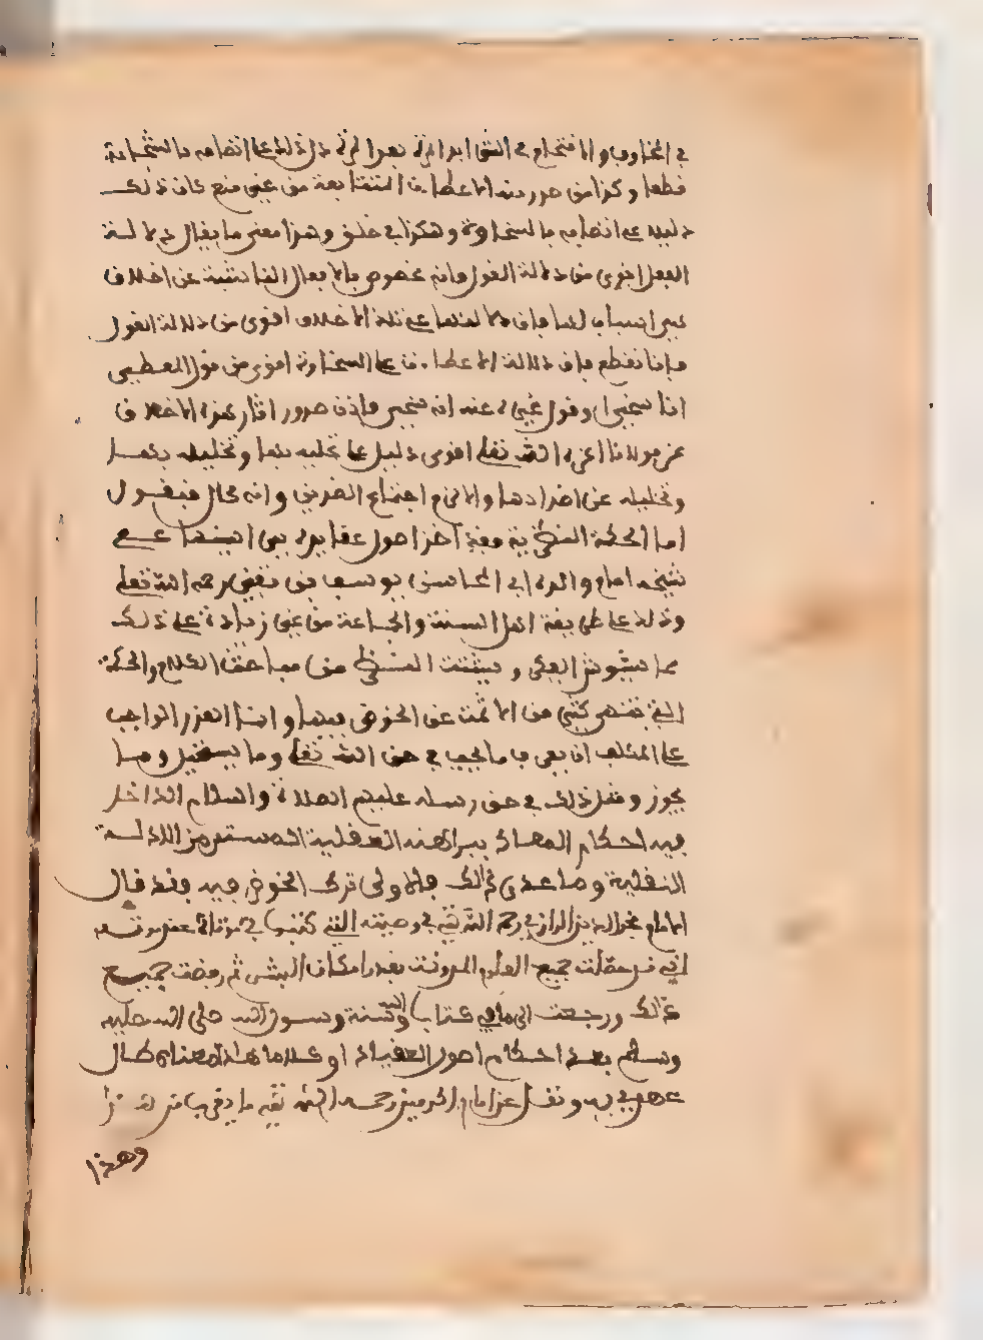 في المخاوف والاقتحام في الشيء ابدا المرة بعد المرة دل ذلك على اتصافه بالشجاعة
قطعا وكذا من صدرت منه الاعطاءات المتتابعة من غير منع كان ذلك
دليله على اتصافه بالسخاوة وهكذا في خلق وهذا معنى ما يقال دلالة
الفعل اقوى من دلالة القول فانه مخصوص بالافعال الناشئة عن اخلاق
هي اسباب لها فان دلالتها على تلك الاخلاق اقوى من دلالة القول
فانا نقطع بان دلالة الاعطاءات على السخاوة اقوى من قول المعطي
انا سخي وقول غيره عنه انه سخي فاذن صدور اثار هذه الاخلاق
عن مولانا اعزه الله تعلى اقوى دليل على تحليه بها وتخليقه بها
وتخليه عن اضدادها والا لزم اجتماع الضدين وانه محال فنقول
اما الحكمة النظرية فقد اخذ اصول عقايده
شيخه امام والده ابي المحاسن يوسف رحمه الله تعلى
وذلك على طريقة اهل السنة والجماعة من غير زيادة على ذلك
مما يشوش الفكر ويشتت النظر من مباحث الكلام والحكمة
التي نهى كثير من الائمة عن الخوض فيها وانما القدر الواجب
على المكلف ان يعرف ما يجب في حق الله تعلى وما يستحيل وما
يجوز ومثل ذلك في حق رسله عليهم الصلاة والسلام الداخل
فيه احكام المعاد ببراهينه العقلية المستقر من الادلة
النقلية وما عدى ذلك فالاولى ترك الخوض فيه فقد قال
الامام فخر الدين الرازي رحمه الله في وصيته التي كتبها في
اني قد حصلت جميع العلوم المدونة بقدر امكان البشر ثم رفضت جميع
ذلك ورجعت الى ما في كتاب الله وسنة رسول الله صلى الله عليه
وسلم بعد احكام اصول العقيدة او كلاما هذا معناه طال
عهدي به ونقل عن امام الحرمين رحمه الله ما يقرب من هذا
وهذا